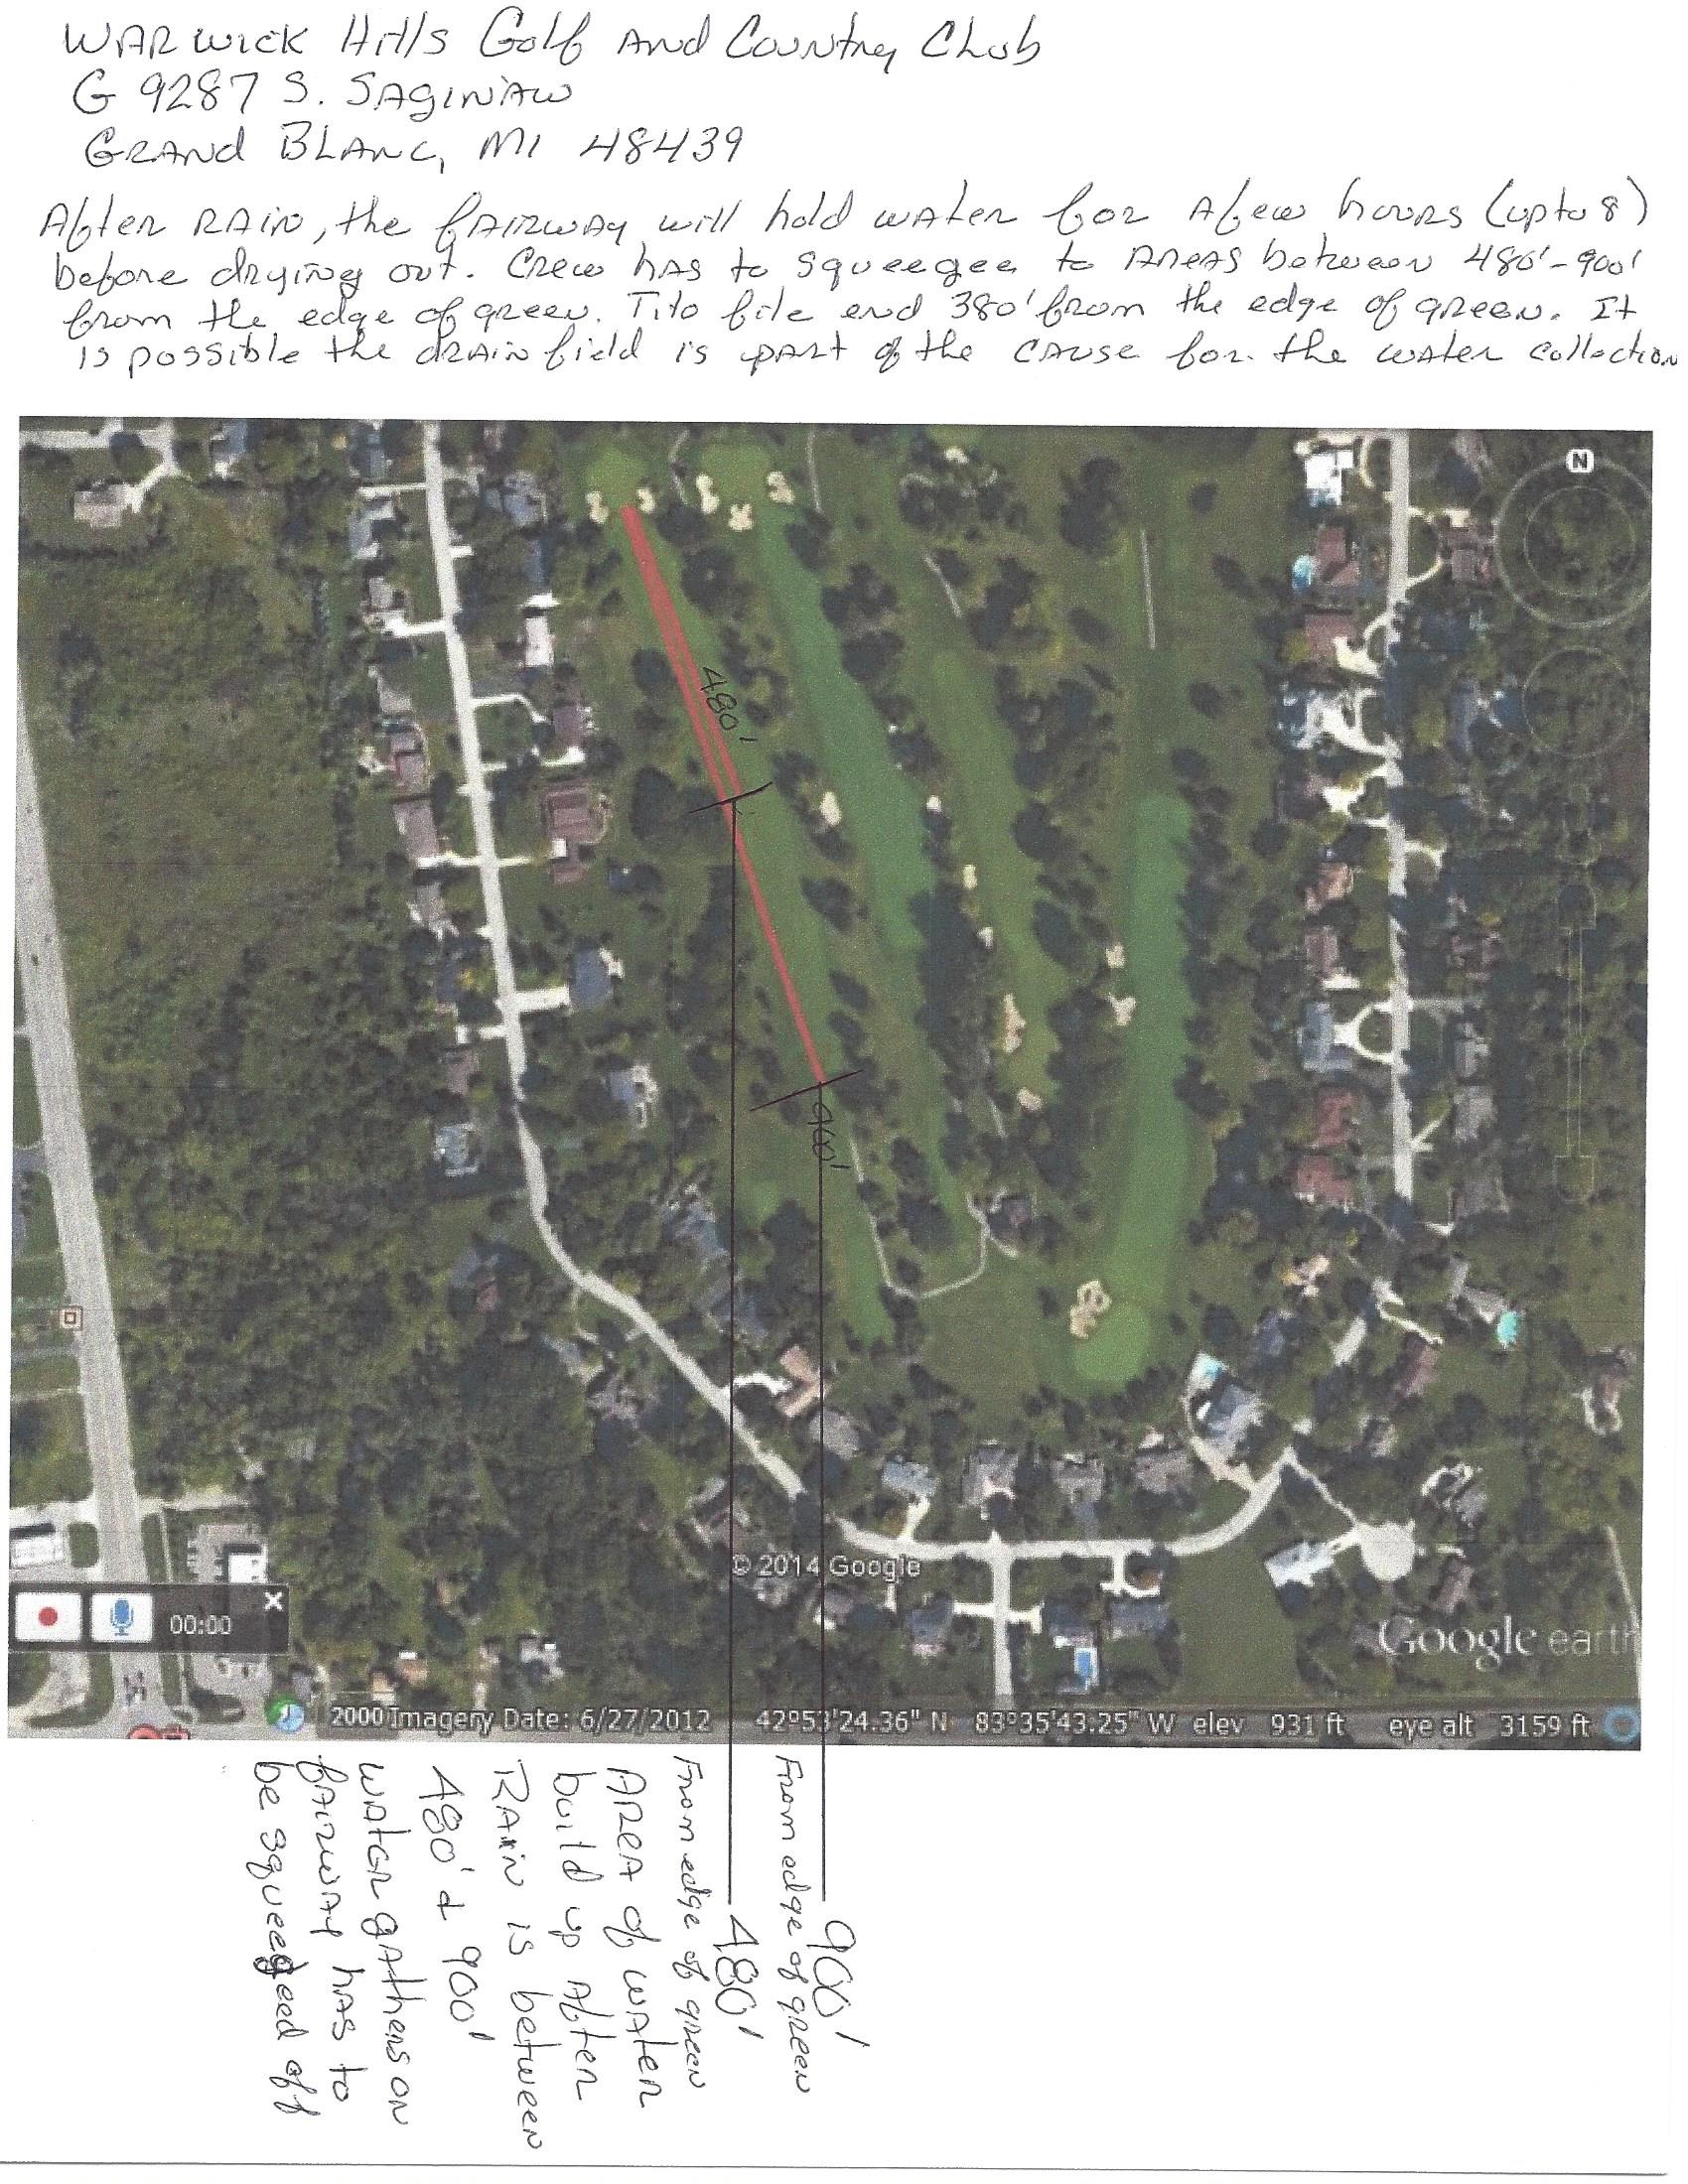 WARWICK Hills Golf And Country Club
G 9287 S. SAGINAW
GRAND BLANC, MI 48439
After RAIN, the FAIRWAY will hold water for A few hours (upto 8)
before drying out. Crew has to squeegee to AReAS between 480'-900'
from the edge of green. Tito file end 380' from the edge of green. It
is possible the drain field is part of the cause for the water collection
N
480'
900'
© 2014 Google
Google earth
00:00
2000 Imagery Date: 6/27/2012 42°53'24.36" N 83°35'43.25" W elev 931 ft eye alt 3159 ft
900'
From edge of green
480'
From edge of green
AREA of water
build up After
RAIN is between
480' & 900'
water gathers on
fairway has to
be squeegeed off